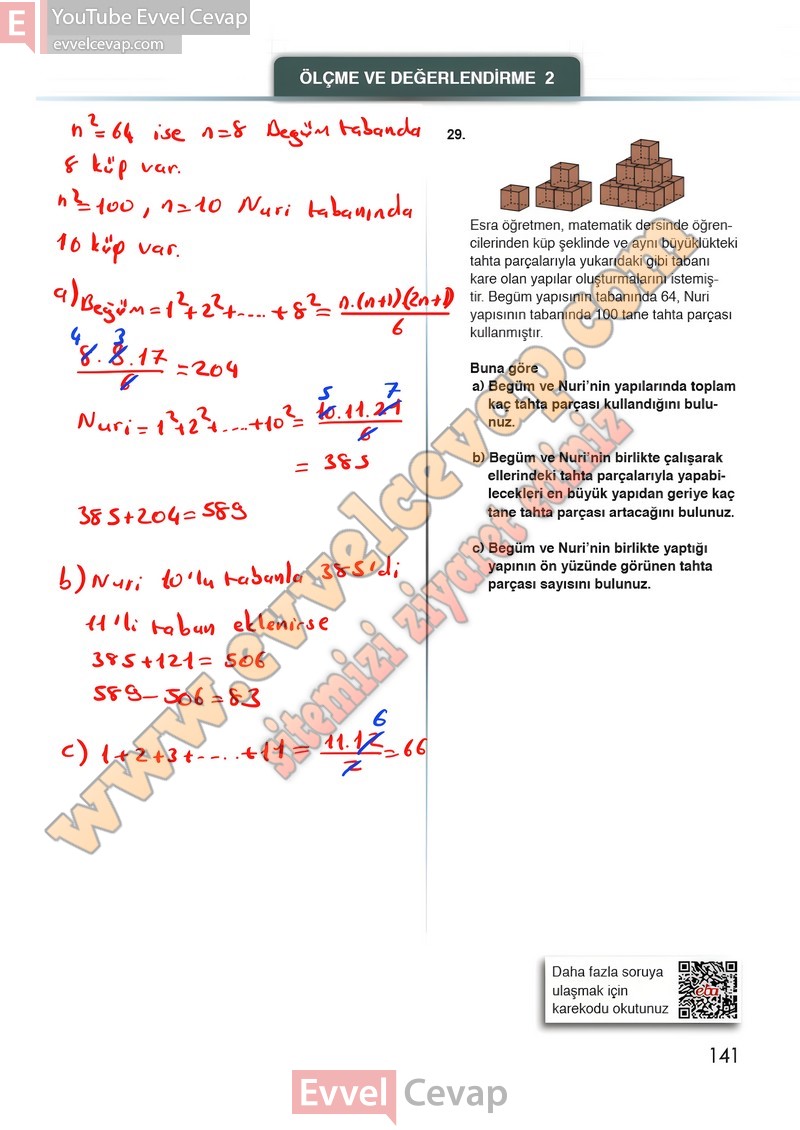 YouTube Evvel Cevap
evvelcevap.com
ÖLÇME VE DEĞERLENDİRME 2
n²=64 ise n=8 Begüm tabanda
8 küp var.
n²=100, n=10 Nuri tabanında
10 küp var.
a) Begüm=1²+2²+....+8²= n.(n+1)(2n+1)
6
4 3
8.8.17
6 =204
5 7
Nuri=1²+2²+....+10²= 10.11.21
6
= 385
385+204=589
b) Nuri 10'lu tabanla 385'di
11'li taban eklenirse
385+121= 506
589-506=83
6
c) 1+2+3+....+11= 11.12 =66
2
29.
Esra öğretmen, matematik dersinde öğren-
cilerinden küp şeklinde ve aynı büyüklükteki
tahta parçalarıyla yukarıdaki gibi tabanı
kare olan yapılar oluşturmalarını istemiş-
tir. Begüm yapısının tabanında 64, Nuri
yapısının tabanında 100 tane tahta parçası
kullanmıştır.
Buna göre
a) Begüm ve Nuri'nin yapılarında toplam
kaç tahta parçası kullandığını bulu-
nuz.
b) Begüm ve Nuri'nin birlikte çalışarak
ellerindeki tahta parçalarıyla yapabi-
lecekleri en büyük yapıdan geriye kaç
tane tahta parçası artacağını bulunuz.
c) Begüm ve Nuri'nin birlikte yaptığı
yapının ön yüzünde görünen tahta
parçası sayısını bulunuz.
www.evvelcevap.com
sitemizi ziyaret ediniz
Daha fazla soruya
ulaşmak için
karekodu okutunuz
eba
141
Evvel Cevap